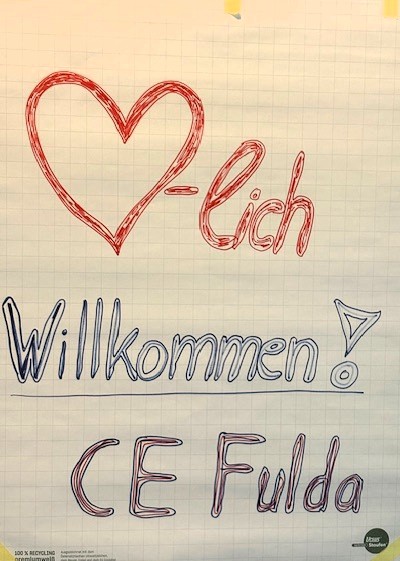 ❤-lich
Willkommen!
CE Fulda
100 % RECYCLING
premiumweiß